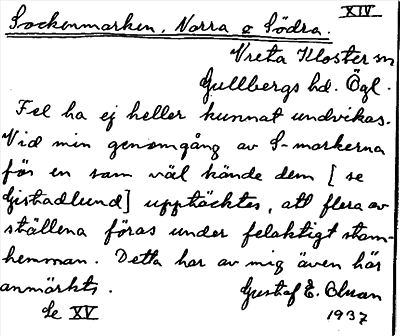 XIV
Sockenmarken, Norra o Södra.
Vreta Kloster sn
Gullbergs hd. Ögl.
Fel ha ej heller kunnat undvikas.
Vid min genomgång av S-markerna
för en som väl kände dem [se
Gistadlund] upptäcktes, att flera av
ställena föras under felaktigt stam-
hemman. Detta har av mig även här
anmärkts. Gustaf E.
Se XV 1937